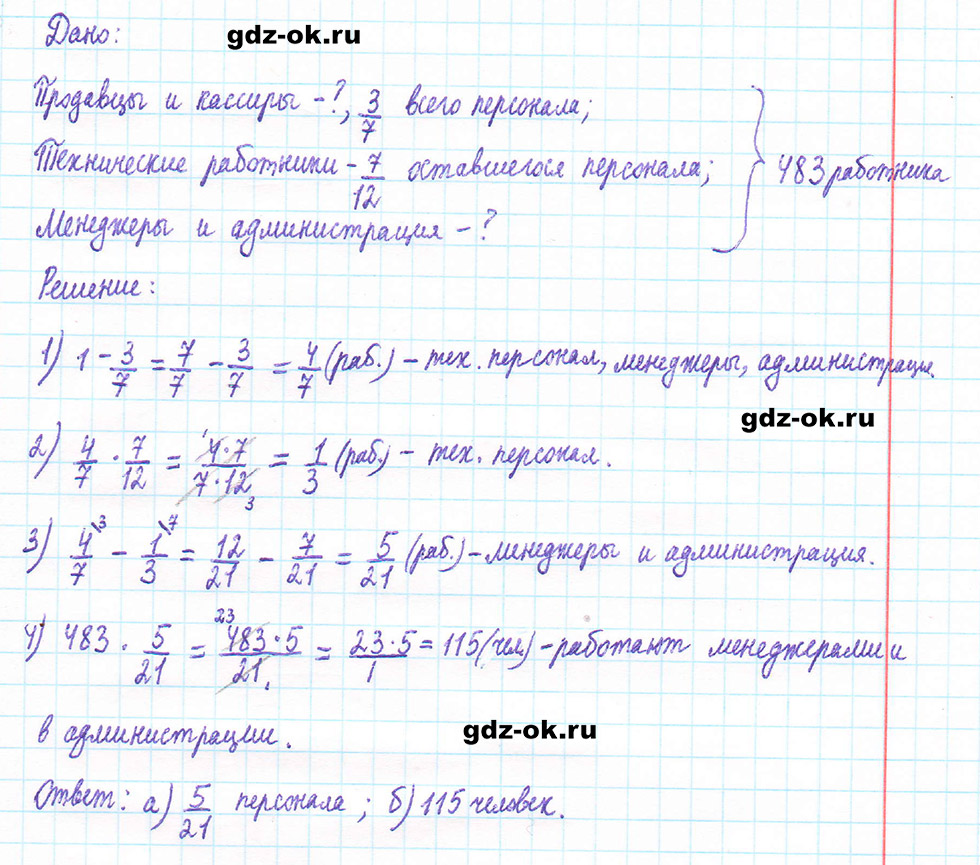 Дано:
gdz-ok.ru
Продавцы и кассиры - ?, 3/7 всего персонала;
Технические работники - 7/12 оставшегося персонала;
483 работника
Менеджеры и администрация - ?
Решение:
1) 1 - 3/7 = 7/7 - 3/7 = 4/7 (раб.) - тех. персонал, менеджеры, администрация.
gdz-ok.ru
2) 4/7 · 7/12 = 4·7/7·12 = 1/3 (раб.) - тех. персонал.
3) 4/7 - 1/3 = 12/21 - 7/21 = 5/21 (раб.) - менеджеры и администрация.
4) 483 · 5/21 = 483·5/21 = 23·5/1 = 115 (чел) - работают менеджерами и
в администрации.
gdz-ok.ru
Ответ: а) 5/21 персонала; б) 115 человек.